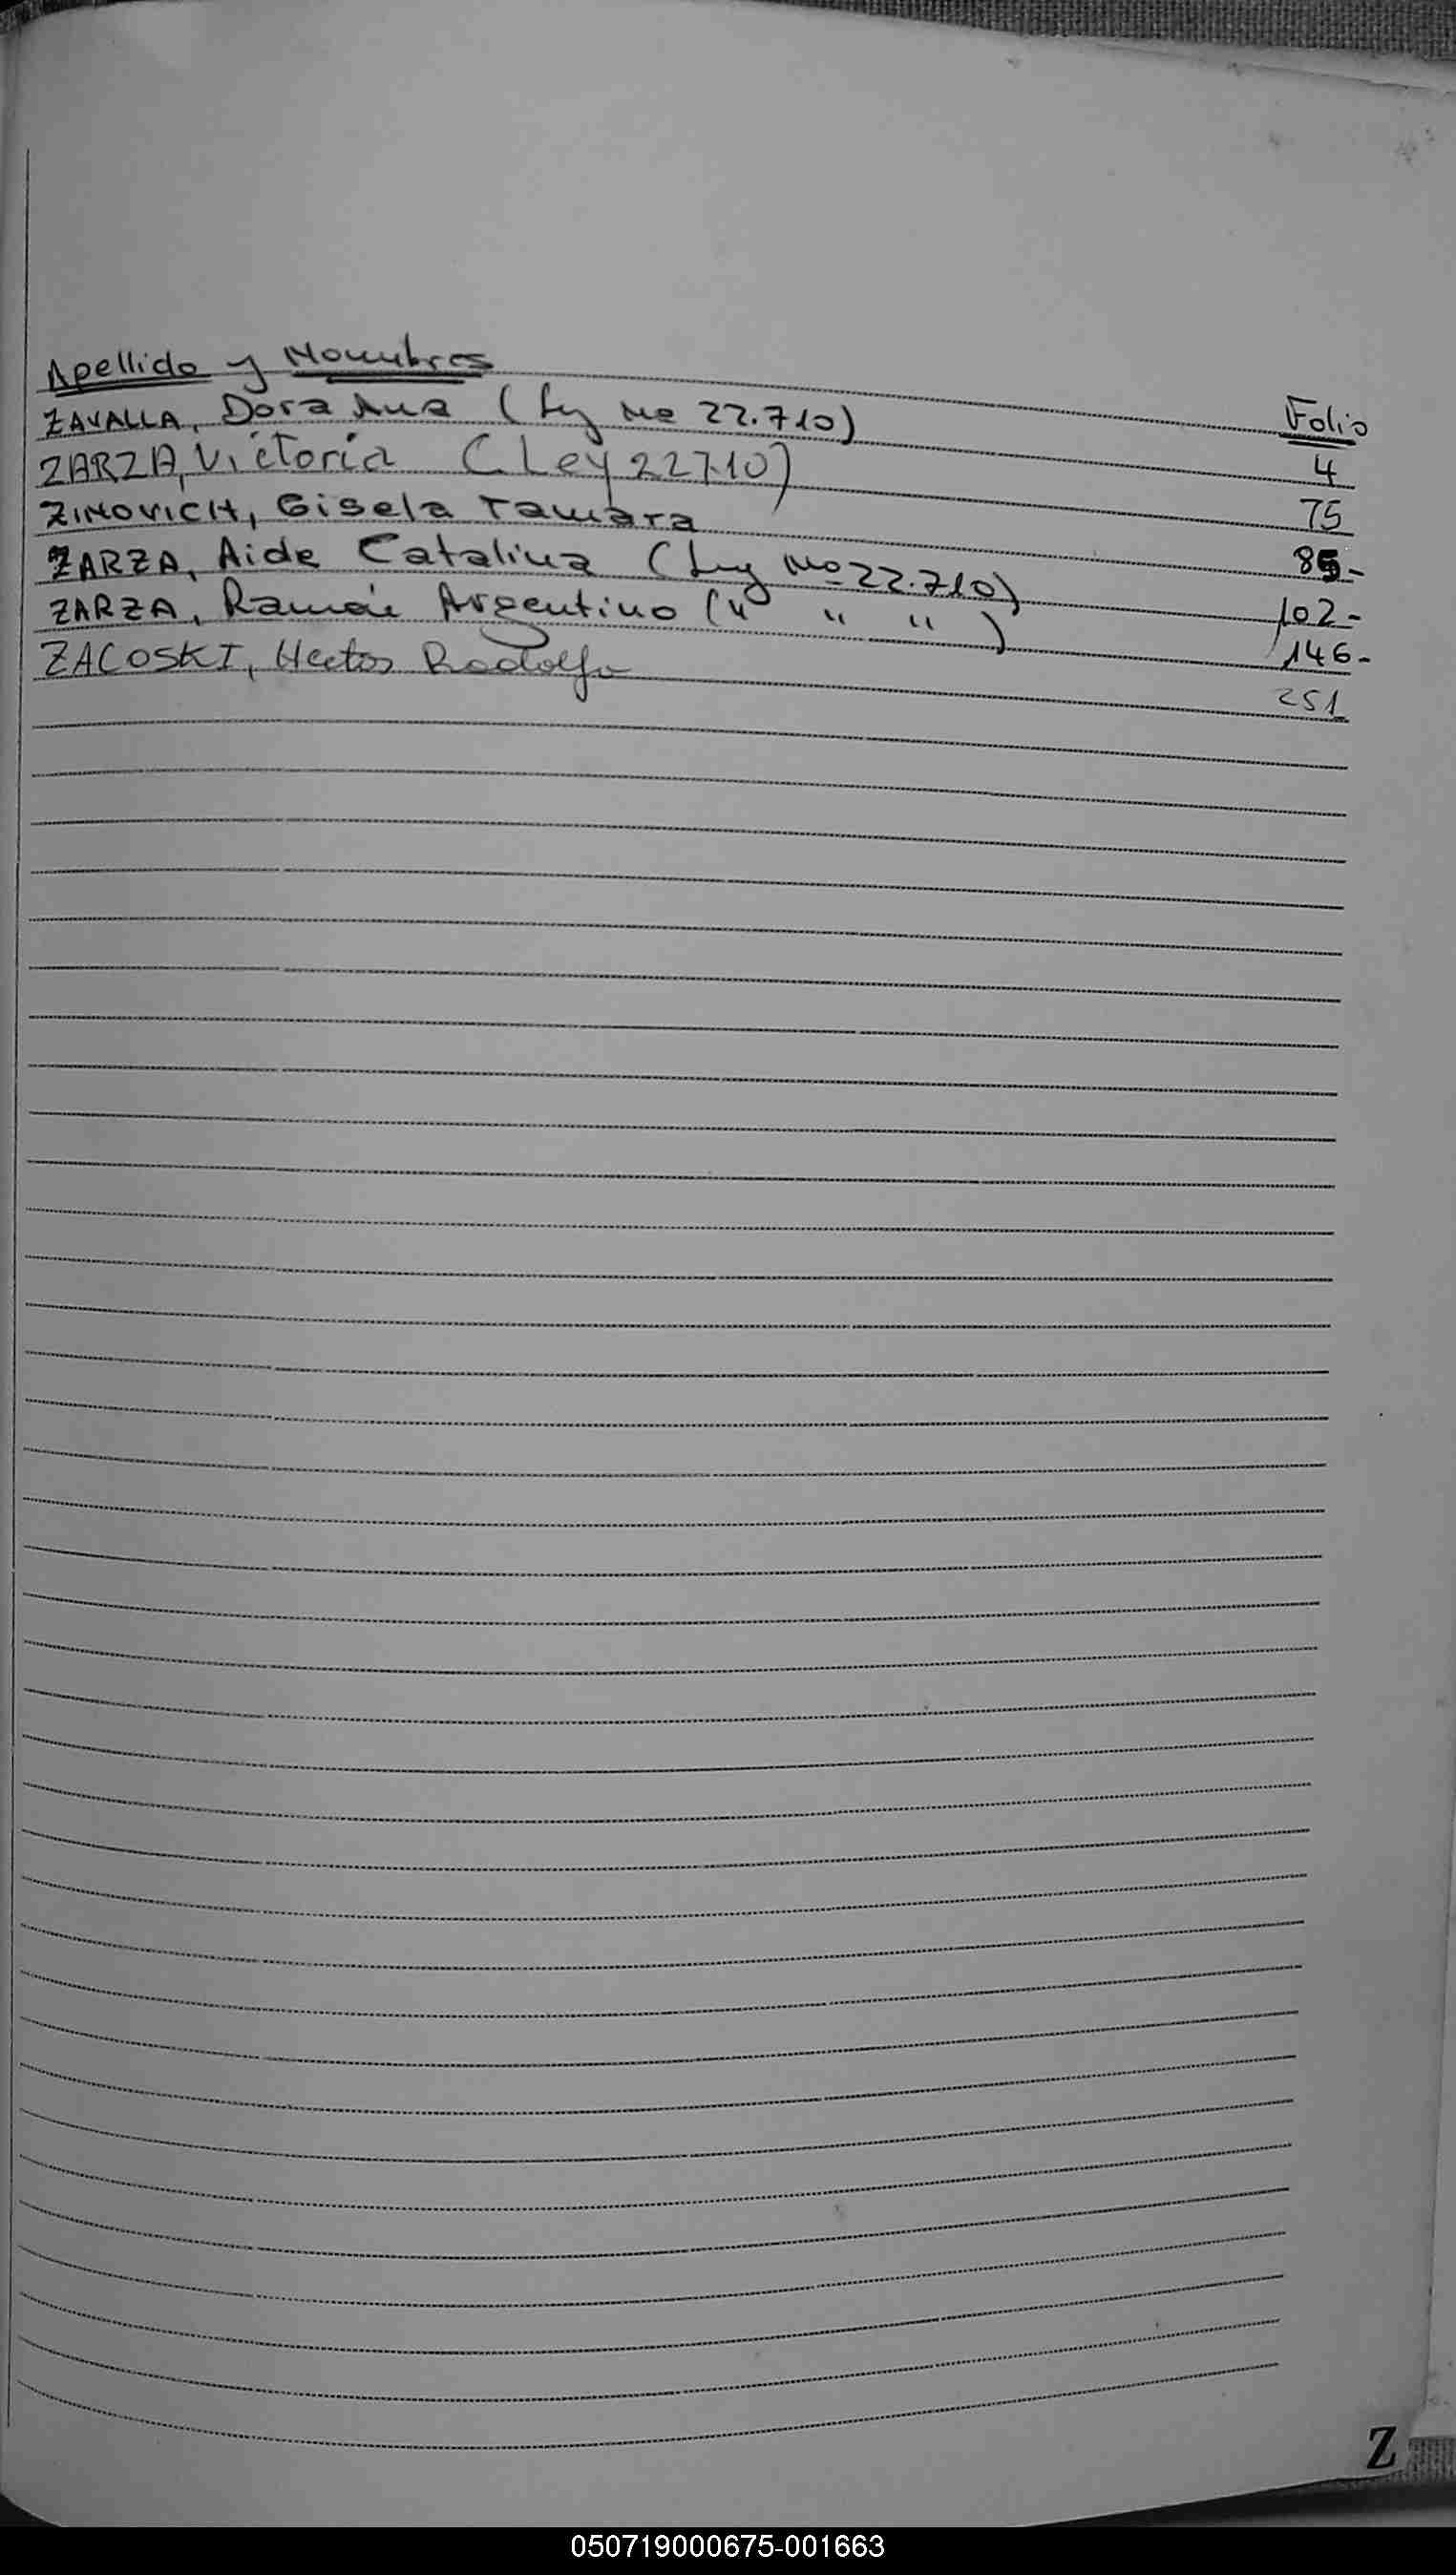 Apellido y Nombres Folio
ZAVALLA, Dora Ana (Ley Nº 22.710) 4
ZARZA, Victoria (Ley 22710) 75
ZINOVICH, Gisela Tamara 85-
ZARZA, Aide Catalina (Ley Nº 22.710) 102-
ZARZA, Ramón Argentino (" " " ) 146-
ZACOSKI, Hector Rodolfo 251
Z
050719000675-001663